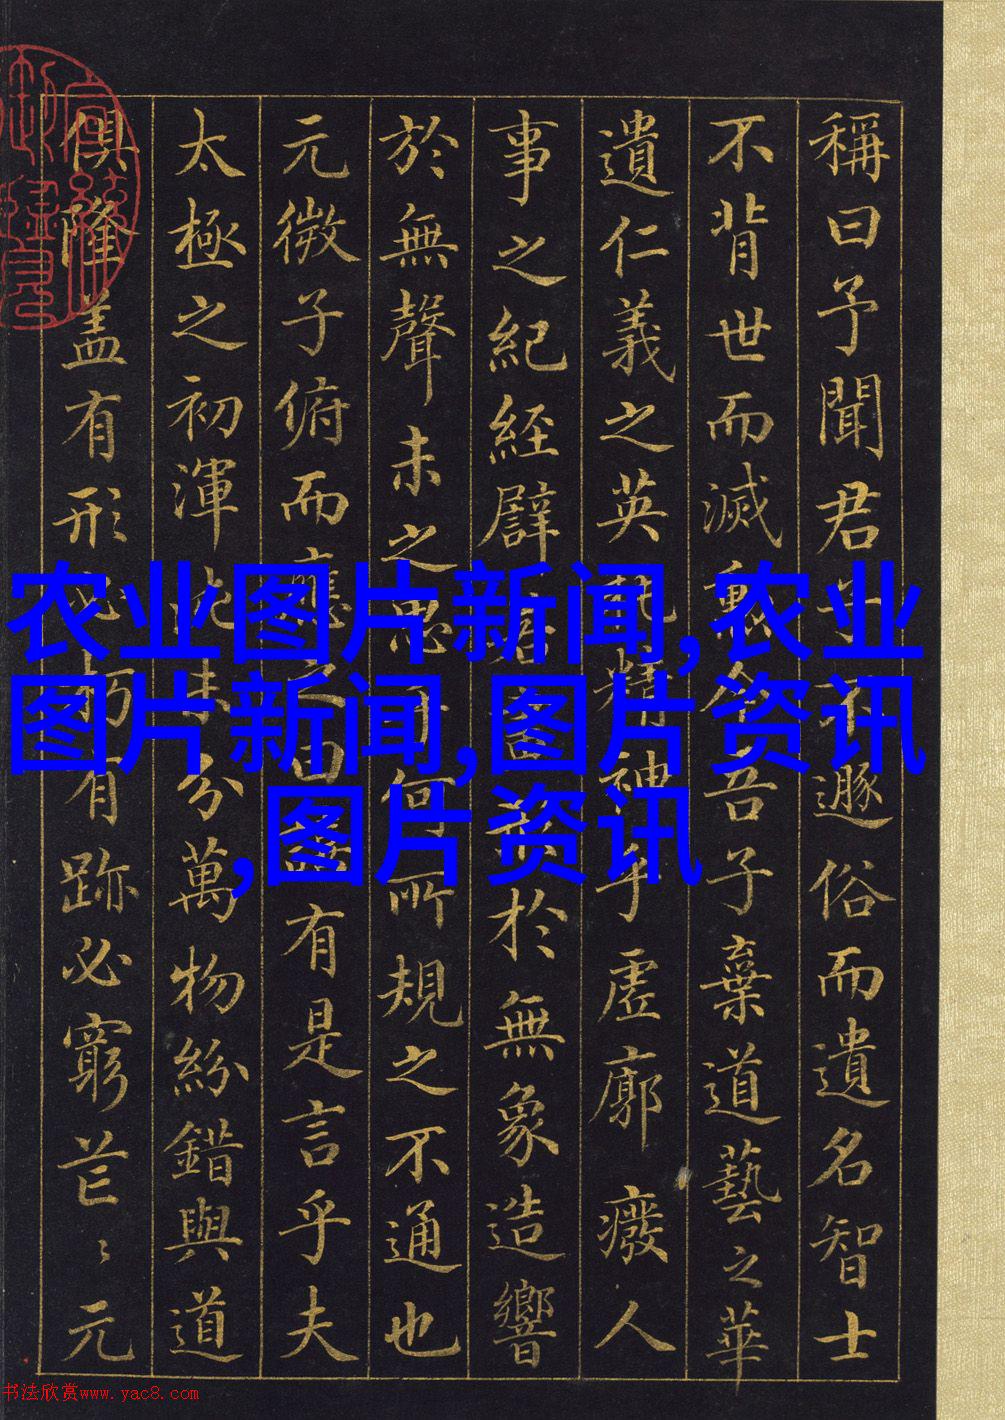 稱曰予聞君子不遯俗而遺名智士
不背世而滅勳今吾子棄道藝之華
遺仁義之英耗精神乎虛廓癈人
事之紀經譬若畫形於無象造響
於無聲未之思乎何所規之不通也
元微子俯而應之曰嘻有是言乎夫
太極之初渾沌未分萬物紛錯與道
俱隆盖有形必朽有跡必窮芒〻元
农业图片新闻,农业
图片新闻,图片资讯
,图片资讯
书法欣赏www.yac8.com